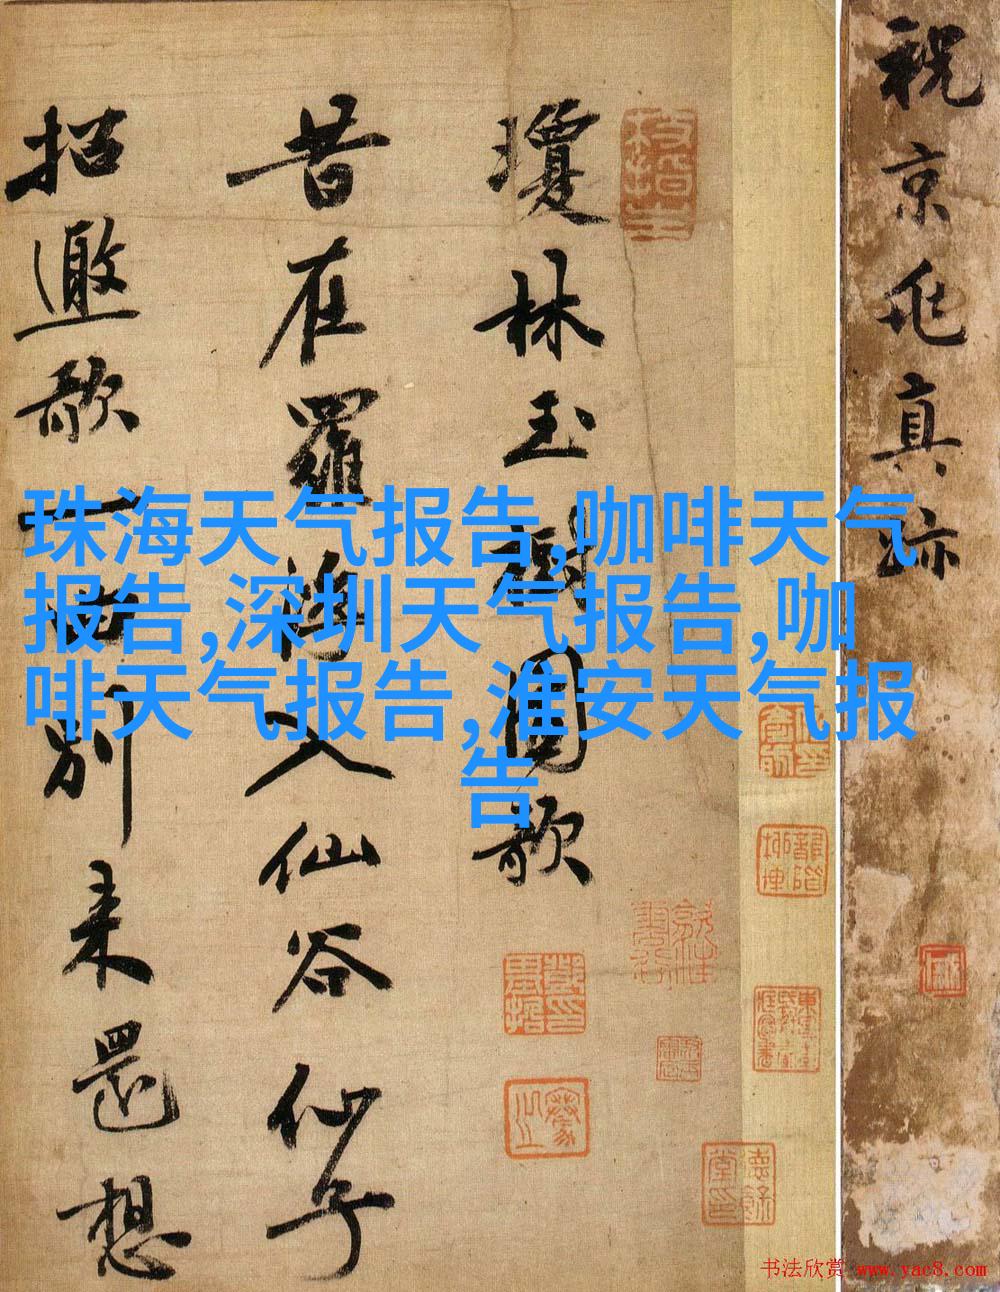 珠海天气报告,咖啡天气
报告,深圳天气报告,咖
啡天气报告,淮安天气报
告
祝京兆真跡
瓊林玉樹圖歌
昔在羅浮入仙谷仙子
招邀歌一曲別来還想
书法欣赏 www.yac8.com